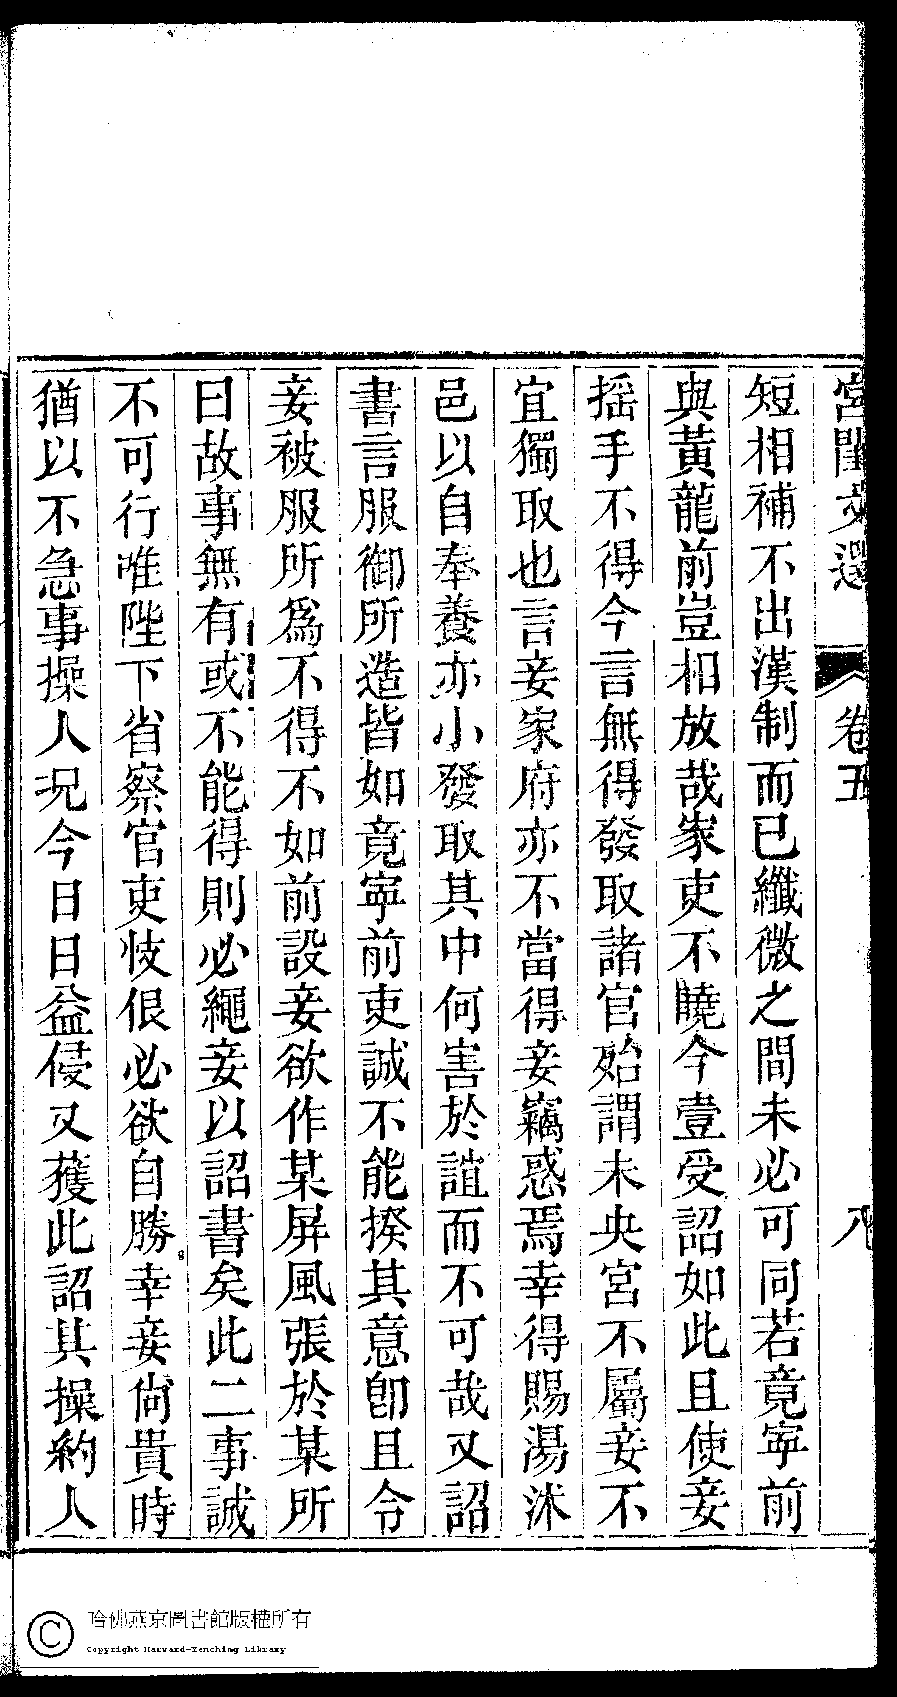 宮閨文選　卷五　八
短相補不出漢制而已纖微之間未必可同若竟寧前
與黃龍前豈相放哉家吏不曉今壹受詔如此且使妾
搖手不得今言無得發取諸官殆謂未央宮不屬妾不
宜獨取也言妾家府亦不當得妾竊惑焉幸得賜湯沐
邑以自奉養亦小發取其中何害於誼而不可哉又詔
書言服御所造皆如竟寧前吏誠不能揆其意卽且令
妾被服所爲不得不如前設妾欲作某屏風張於某所
曰故事無有或不能得則必繩妾以詔書矣此二事誠
不可行唯陛下省察官吏忮佷必欲自勝幸妾尙貴時
猶以不急事操人况今日日益侵又獲此詔其操約人
哈佛燕京圖書館版權所有
Copyright Harvard-Yenching Library